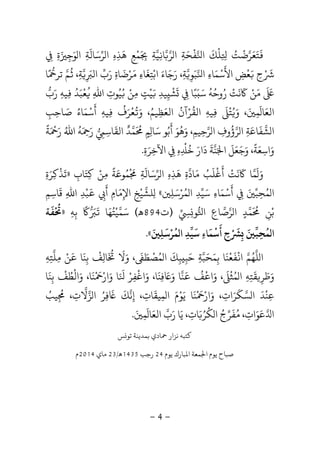 فَتَعَرَّضْتُ لِتِلْكَ النَّفْحَةِ الرَّبَّانِيَّةِ بِجَمْعِ هَذِهِ الرِّسَالَةِ الوَجِيزَةِ فِي
شَرْحِ بَعْضِ الأَسْمَاءِ النَّبَوِيَّةِ، رَجَاءَ ابْتِغَاءِ مَرْضَاةِ رَبِّ البَرِيَّةِ، ثُمَّ تَرَحُّمًا
عَلَى مَنْ كَانَتْ رُوحُهُ سَبَبًا فِي تَشْيِيدِ بَيْتٍ مِنْ بُيُوتِ اللهِ يُعْبَدُ فِيهِ رَبُّ
العَالَمِينَ، وَيُتْلَى فِيهِ القُرْآنُ العَظِيمُ، وَتُعْرَفُ فِيهِ أَسْمَاءُ صَاحِبِ
الشَّفَاعَةِ الرَّؤُوفِ الرَّحِيمِ، وَهُوَ أَبُو سَالِمٍ مُحَمَّدٌ القَاسِمِيُّ رَحِمَهُ اللهُ رَحْمَةً
وَاسِعَةً، وَجَعَلَ الجَنَّةَ دَارَ خُلْدِهِ فِي الآخِرَةِ.
وَلَمَّا كَانَتْ أَغْلَبُ مَادَّةِ هَذِهِ الرِّسَالَةِ مَجْمُوعَةً مِنْ كِتَابِ «تَذْكِرَةِ
المُحِبِّينَ فِي أَسْمَاءِ سَيِّدِ المُرْسَلِينَ» لِلشَّيْخِ الإِمَامِ أَبِي عَبْدِ اللهِ قَاسِمِ
بْنِ مُحَمَّدٍ الرَّصَّاعِ التُّونِسِيِّ (ت894هـ) سَمَّيْتُهَا تَبَرُّكًا بِهِ «تُحْفَةَ
المُحِبِّينَ بِشَرْحِ أَسْمَاءِ سَيِّدِ المُرْسَلِينَ».
اللَّهُمَّ انْفَعْنَا بِمَحَبَّةِ حَبِيبِكَ المُصْطَفَى، وَلَا تُخَالِفْ بِنَا عَنْ مِلَّتِهِ
وَطَرِيقَتِهِ المُثْلَى، وَاعْفُ عَنَّا وَعَافِنَا، وَاغْفِرْ لَنَا وَارْحَمْنَا، وَالْطُفْ بِنَا
عِنْدَ السَّكَرَاتِ، وَارْحَمْنَا يَوْمَ المِيقَاتِ، إِنَّكَ غَافِرُ الزَّلَّاتِ، مُجِيبُ
الدَّعَوَاتِ، مُفَرِّجُ الكُرُبَاتِ، يَا رَبَّ العَالَمِينَ.
كتبه نزار حمادي بمدينة تونس
صباح يوم الجمعة المبارك يوم 24 رجب 1435هـ/23 ماي 2014م
- 4 -